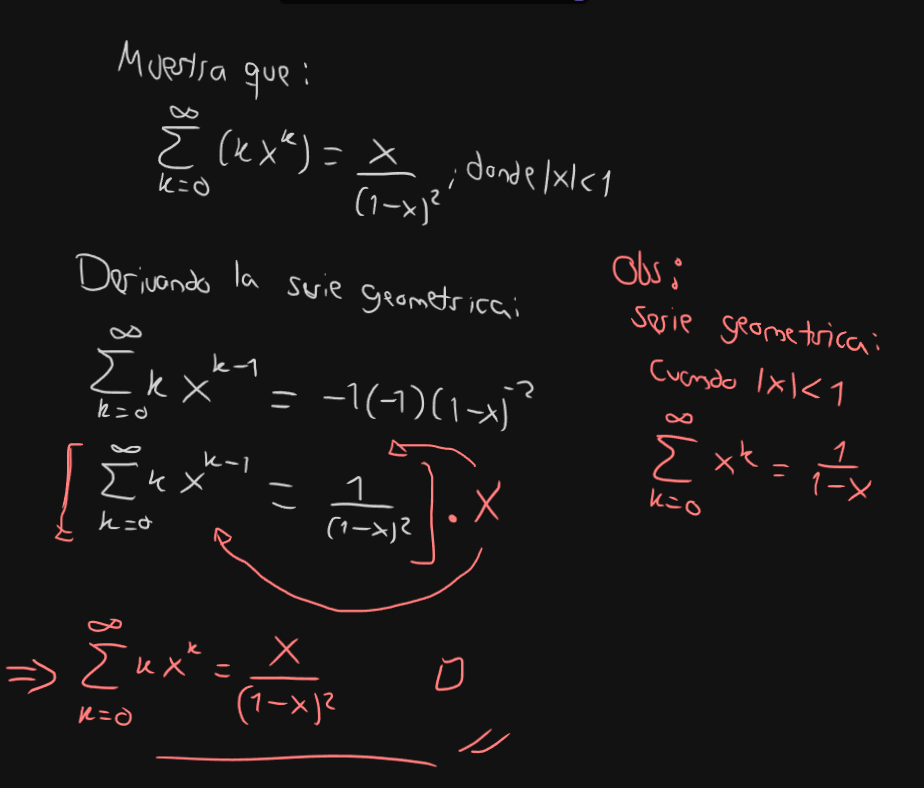 Muestra que:
∑_{k=0}^{∞} (k x^k) = x / (1-x)^2 ; donde |x|<1
Derivando la serie geometrica:
∑_{k=0}^{∞} k x^{k-1} = -1(-1)(1-x)^{-2}
[ ∑_{k=0}^{∞} k x^{k-1} = 1 / (1-x)^2 ] · x
⇒ ∑_{k=0}^{∞} k x^k = x / (1-x)^2 □
Obs:
serie geometrica:
Cuando |x|<1
∑_{k=0}^{∞} x^k = 1 / 1-x